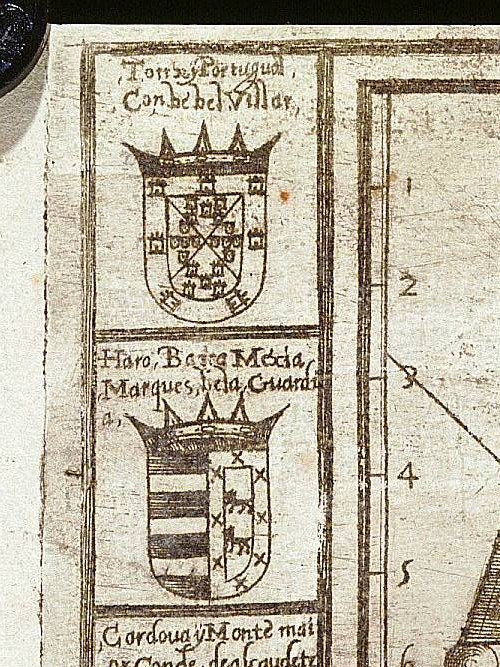 Torres y Portugual,
Con, de, del Villar,
1
2
Haro, Baeça Mecia,
Marques, dela, Guardi
a,
3
4
5
Cordoua y Monte mai
or Conde, de alcaudete
6